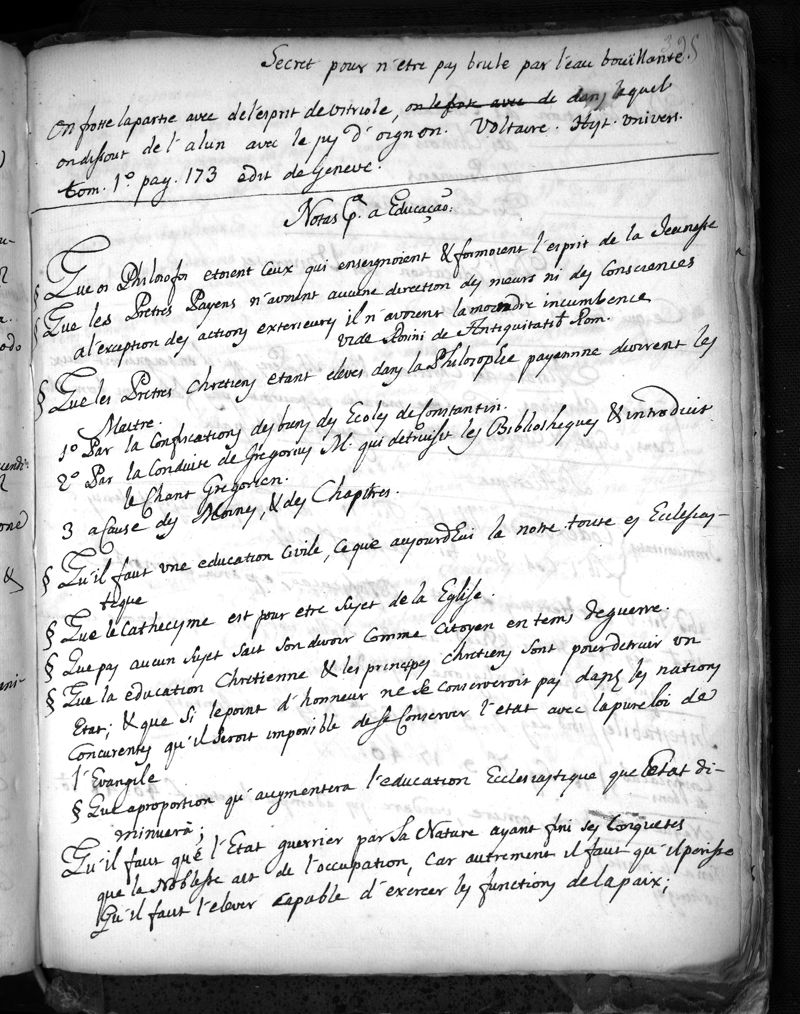 395
Secret pour n'etre pas brule par l'eau bouïllante.
on frotte la partie avec de l'esprit de vitriole, on le frote avec de dans laquel
on dissout de l'alun avec le jus d'oignon. Voltaire. Hist. univers.
tom. 1º pag. 173 edit de Geneve.
Notas pª a Educação:
§ Que os Philosofos etoient ceux qui enseignoient & formoient l'esprit de la Jeunesse
§ Que les Pretres Payens n'avoient aucune direction des mœurs ni des Consciences
a l'exception des actions exterieures il n'avoient la moendre incumbence
vide Rosini de Antiquitatib Rom.
§ Que les Pretres Chretiens etant eleves dans la Philosophie payennne devinrent les
Maitre.
1º Par la Confiscations des biens des Ecoles de Constantin.
2º Par la Conduite de Gregorius M. qui detruisit les Bibliotheques & introduisit
le Chant Gregorien.
3 a Cause des Moines, & des Chapitres.
§ Qu'il faut une education Civile, Ce que aujourdhui la notre toute es Ecclesias-
tique
§ Que le Cathecisme est pour etre sujet de la Eglise.
§ Que pas aucun sujet sait son devoir comme Citoyen en tems de guerre.
§ Que la education Chretienne & les principes chretiens sont pour detruir un
Etat; & que si le point d'honneur ne se conserveroit pas dans les nations
Concurentes qu'il seroit imposible de se Conserver l'etat avec la pure loi de
l'Evangile
§ Que a proportion qu'augmentera l'education Ecclesiastique que l'Etat di-
minuerà;
Qu'il faut que l'Etat guerrier par sa Nature ayant fini ses Conquetes
que la Noblesse ait de l'occupation, Car autrement il faut qu'il perisse
Qu'il faut l'elever capable d'exercer les functions de la paix;